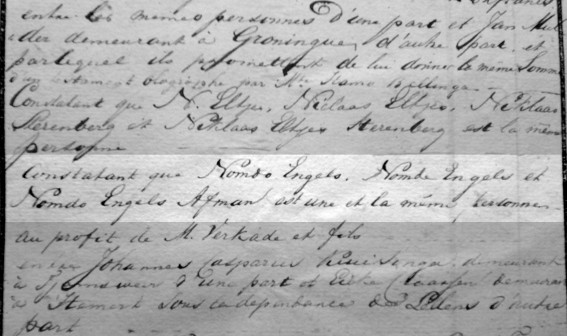 entre les mêmes personnes d'une part et Jan Mul
der demeurant à Groningue, d'autre part et
par lequel ils promettent de lui donner la même somme
d'un testament olographe par
Constatant que N. Eltjes, Niclaas Eltjes, Niklaas
Sterenberg et Niklaas Eltjes Sterenberg est la même
personne
Constatant que Nomdo Engels, Nombe Engels et
Nomdo Engels Afman est une et la même personne
au profit de M. Verkade et fils
entre Johannes Casparus demeurant
à d'une part et Claassen demeurant
à Stement sous la dépendance de d'autre
part